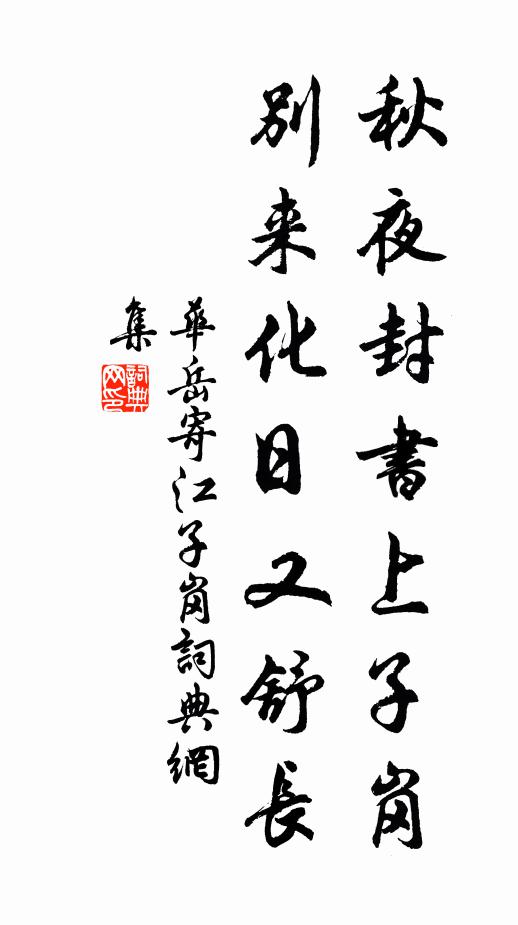 秋夜封書上子崗
別来化日又舒長
華岳寄江子崗詞典網
集
詞典
网印